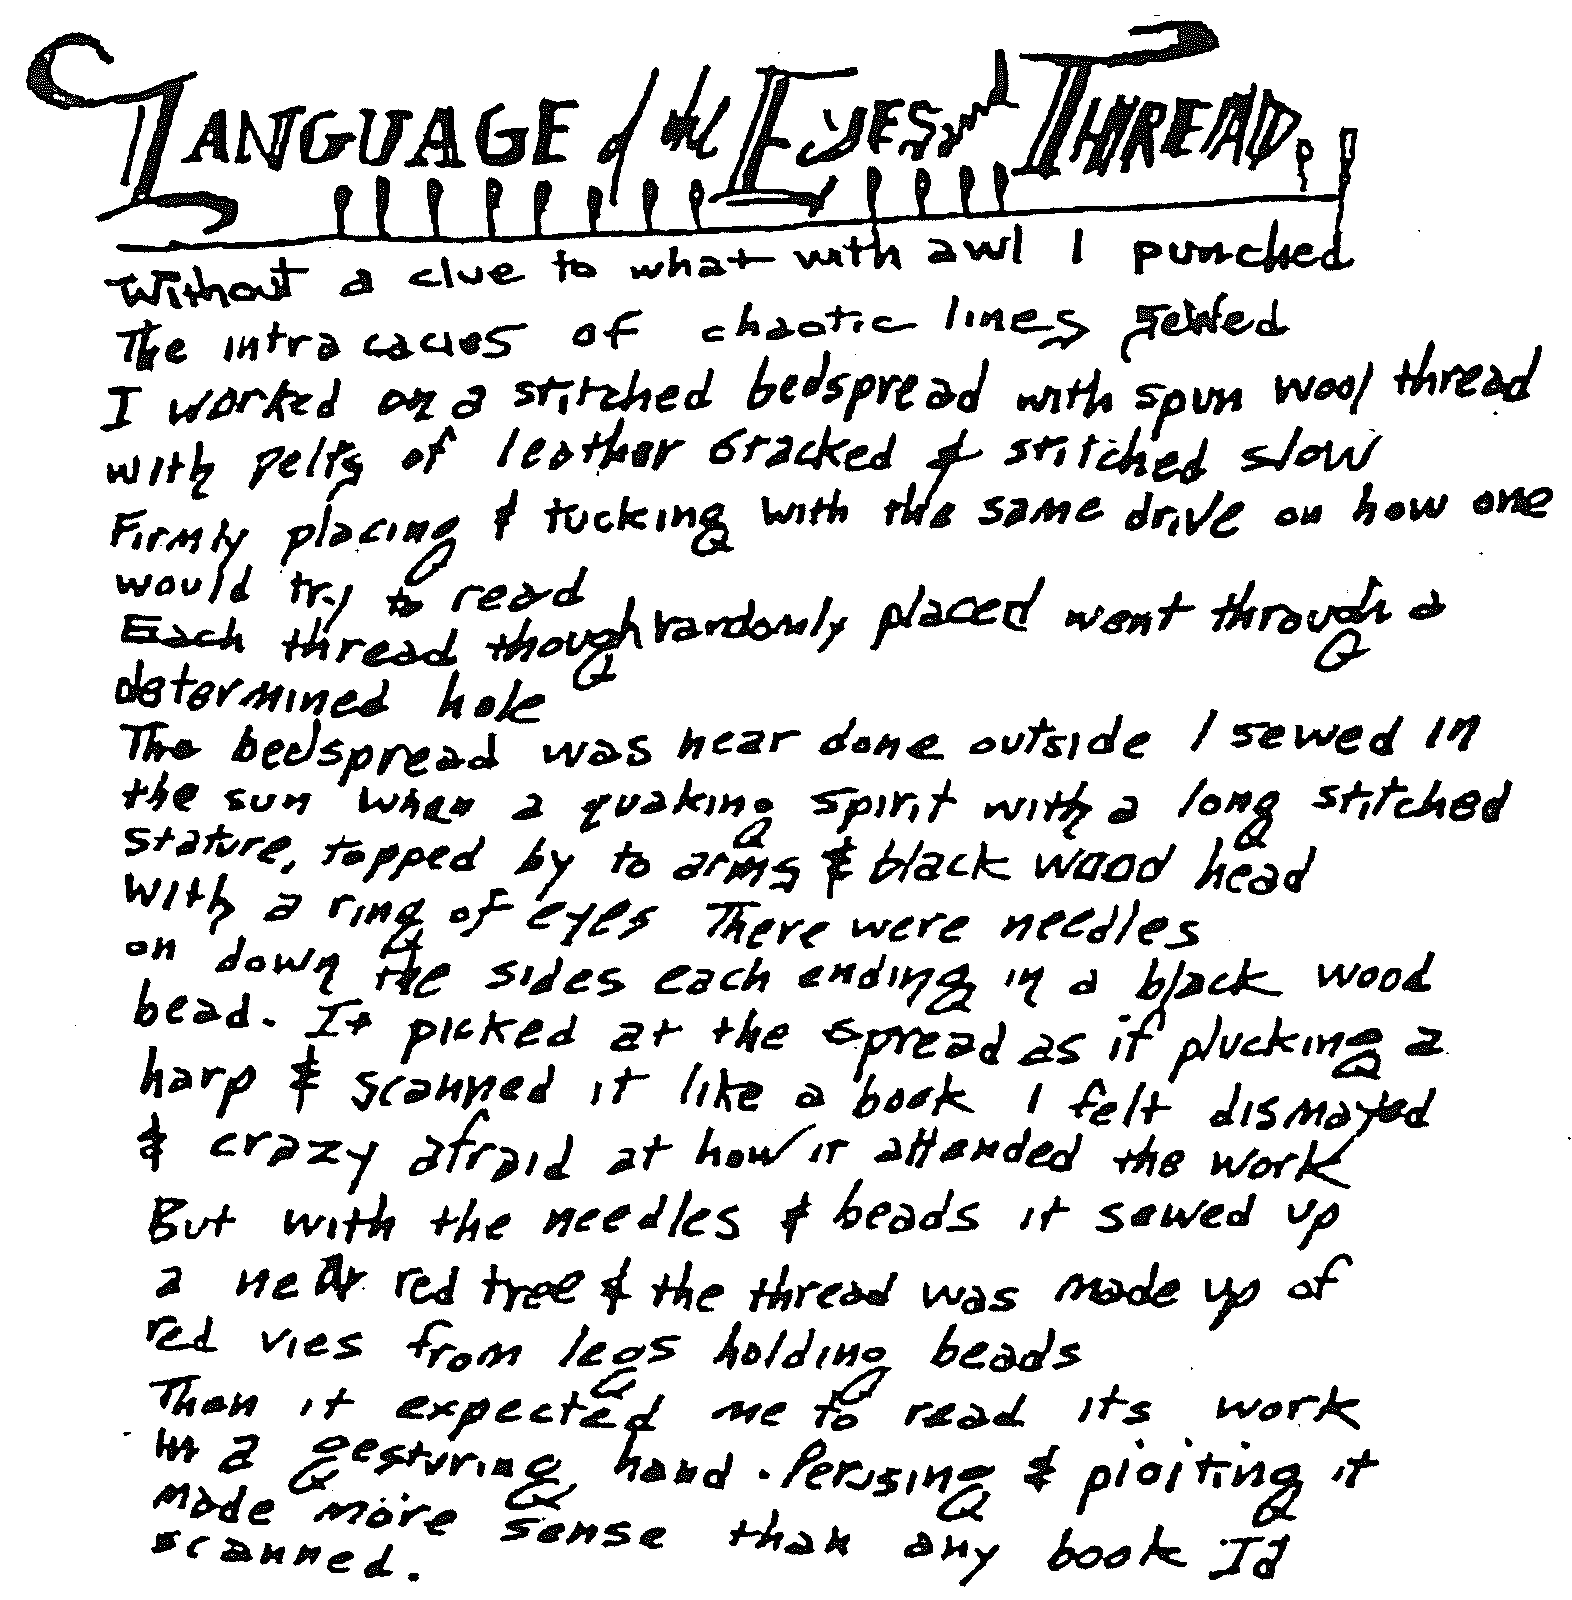 LANGUAGE of the EYES and THREAD.
Without a clue to what with awl I punched
The intracacies of chaotic lines sewed
I worked on a stitched bedspread with spun wool thread
with pelts of leather stacked & stitched slow
Firmly placing & tucking with the same drive on how one
would try to read
Each thread though randomly placed went through a
determined hole
The bedspread was near done outside I sewed in
the sun when a quaking spirit with a long stitched
stature, topped by to arms & black wood head
with a ring of eyes There were needles
on down the sides each ending in a black wood
bead. It picked at the spread as if plucking a
harp & scanned it like a book I felt dismayed
& crazy afraid at how it attended the work
But with the needles & beads it sewed up
a near red tree & the thread was made up of
red vies from legs holding beads
Then it expected me to read its work
in a gesturing hand. Perusing & ploiting it
made more sense than any book I'd
scanned.